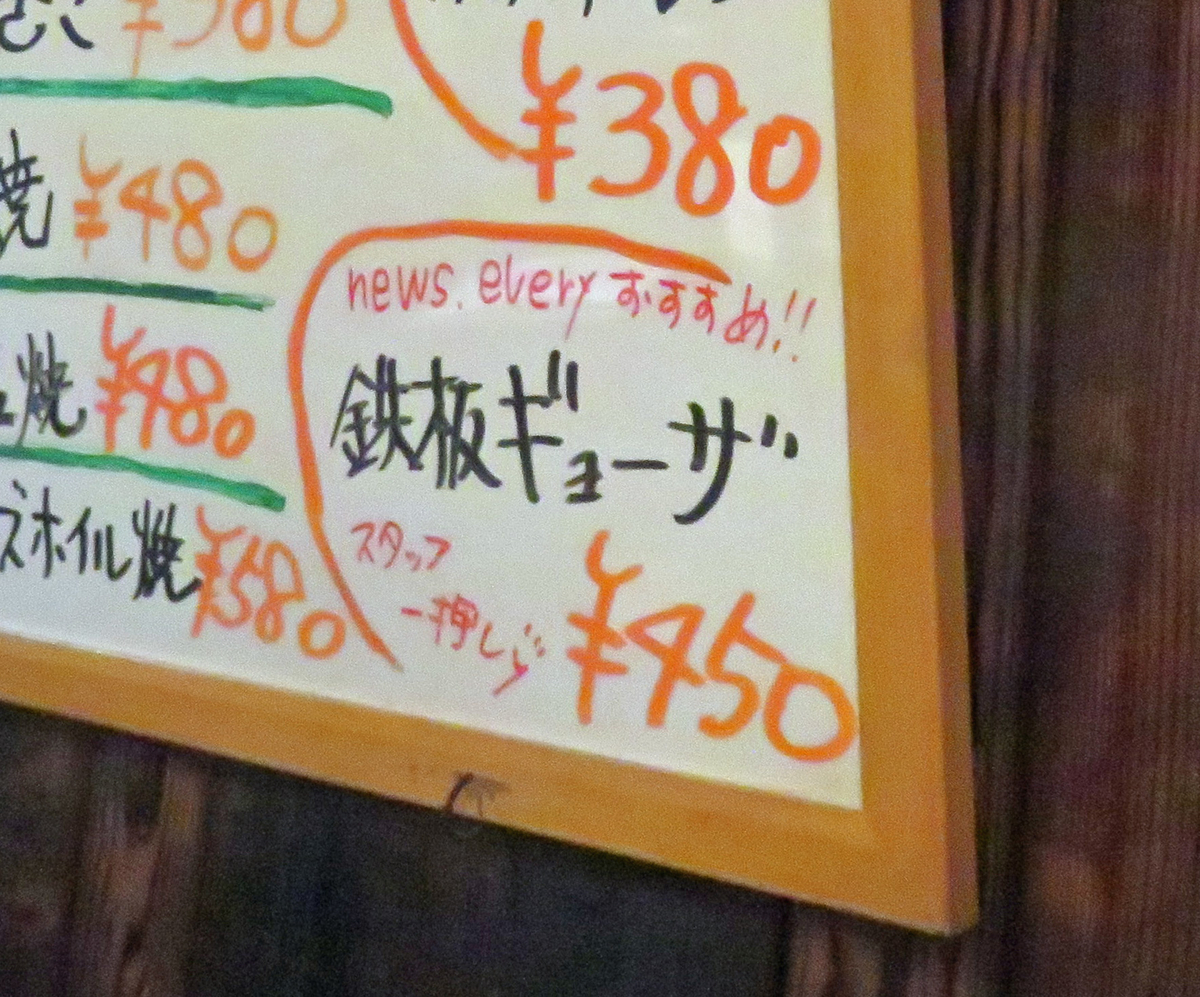 ¥380
¥380
焼 ¥480
焼 ¥480
ズホイル焼 ¥580
news. every おすすめ!!
鉄板ギョーザ
スタッフ
一押しジ
¥450